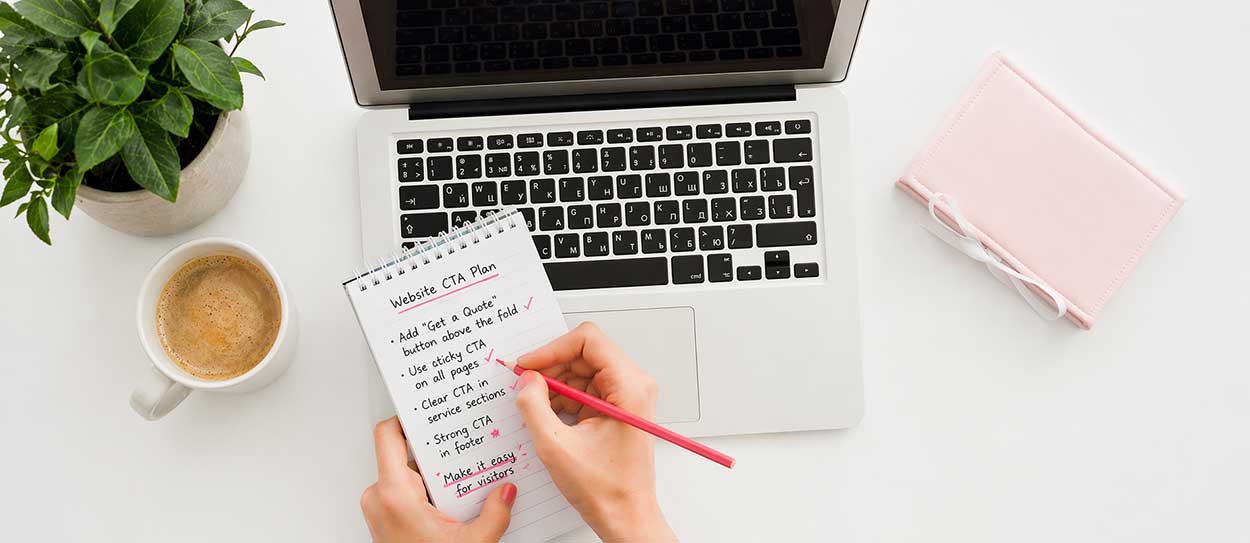 Website CTA Plan
• Add "Get a Quote"
button above the fold
• Use sticky CTA
on all pages
• Clear CTA in
service sections
• Strong CTA
in footer
Make it easy
for visitors